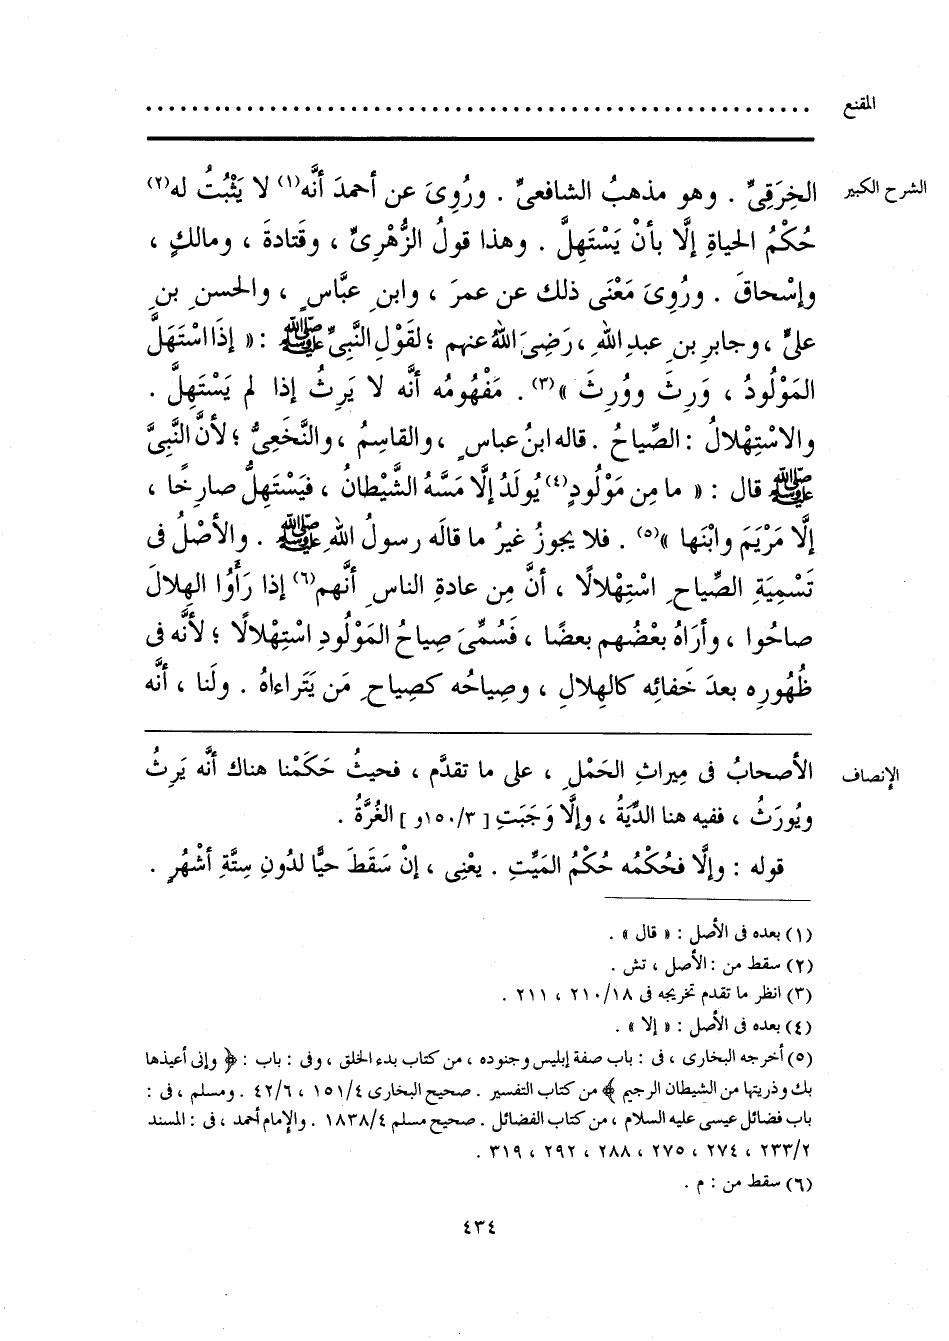 المقنع ......................................................
الشرح الكبير الخِرَقِىِّ . وهو مذهبُ الشافعىِّ . ورُوِىَ عن أحمدَ أنَّه(١) لا يَثْبُتُ له(٢)
حُكْمُ الحياةِ إلَّا بأنْ يَسْتَهِلَّ . وهذا قولُ الزُّهْرِىِّ ، وقَتادةَ ، ومالكٍ ،
وإسْحاقَ . ورُوِىَ مَعْنَى ذلك عن عمرَ ، وابنِ عبَّاسٍ ، والحسنِ بنِ
علىٍّ ، وجابرِ بنِ عبدِ اللهِ ، رَضِىَ اللهُ عنهم ؛ لقَوْلِ النَّبِىِّ ﷺ : « إذَا اسْتَهَلَّ
المَوْلُودُ ، وَرِثَ ووُرِثَ »(٣) . مَفْهُومُه أنَّه لا يَرِثُ إذا لم يَسْتَهِلَّ .
والاسْتِهْلالُ : الصِّياحُ . قاله ابنُ عباسٍ ، والقاسِمُ ، والنَّخَعِىُّ ؛ لأنَّ النَّبِىَّ
ﷺ قال : « ما مِن مَوْلُودٍ(٤) يُولَدُ إلَّا مَسَّهُ الشَّيْطانُ ، فيَسْتَهِلُّ صارِخًا ،
إلَّا مَرْيَمَ وابْنَها »(٥) . فلا يجوزُ غيرُ ما قالَه رسولُ اللهِ ﷺ . والأصْلُ فى
تَسْمِيَةِ الصِّياحِ اسْتِهْلالًا ، أنَّ مِن عادةِ الناسِ أنَّهم(٦) إذا رَأَوُا الهِلالَ
صاحُوا ، وأراهُ بعْضُهم بعضًا ، فسُمِّىَ صِياحُ المَوْلُودِ اسْتِهْلالًا ؛ لأنَّه فى
ظُهُورِه بعدَ خَفائِه كالهِلالِ ، وصِياحُه كصِياحِ مَن يَتَراءاهُ . ولَنا ، أنَّه
الإنصاف الأصحابُ فى مِيراثِ الحَمْلِ ، على ما تقدَّم ، فحيثُ حَكَمْنا هناك أنَّه يَرِثُ
ويُورَثُ ، ففيه هنا الدِّيَةُ ، وإلَّا وَجَبَتِ [ ٣/١٥٠و ] الغُرَّةُ .
قوله : وإلَّا فحُكْمُه حُكْمُ المَيِّتِ . يعْنِى ، إنْ سَقَطَ حيًّا لدُونِ سِتَّةِ أشْهُرٍ .
(١) بعده فى الأصل : « قال » .
(٢) سقط من : الأصل ، تش .
(٣) انظر ما تقدم تخريجه فى ١٨/٢١٠ ، ٢١١ .
(٤) بعده فى الأصل : « إلا » .
(٥) أخرجه البخارى ، فى : باب صفة إبليس وجنوده ، من كتاب بدء الخلق ، وفى : باب : ﴿ وإنى أعيذها
بك وذريتها من الشيطان الرجيم ﴾ من كتاب التفسير . صحيح البخارى ٤/١٥١ ، ٦/٤٢ . ومسلم ، فى :
باب فضائل عيسى عليه السلام ، من كتاب الفضائل . صحيح مسلم ٤/١٨٣٨ . والإمام أحمد ، فى : المسند
٢/٢٣٣ ، ٢٧٤ ، ٢٧٥ ، ٢٨٨ ، ٢٩٢ ، ٣١٩ .
(٦) سقط من : م .
٤٣٤